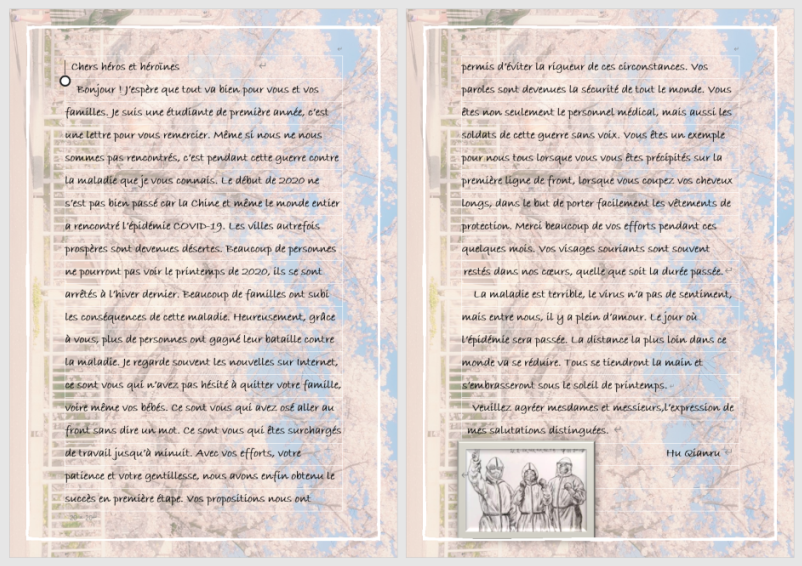 Chers héros et héroïnes
Bonjour ! J'espère que tout va bien pour vous et vos
familles. Je suis une étudiante de première année, c'est
une lettre pour vous remercier. Même si nous ne nous
sommes pas rencontrés, c'est pendant cette guerre contre
la maladie que je vous connais. Le début de 2020 ne
s'est pas bien passé car la Chine et même le monde entier
a rencontré l'épidémie COVID-19. Les villes autrefois
prospères sont devenues désertes. Beaucoup de personnes
ne pourront pas voir le printemps de 2020, ils se sont
arrêtés à l'hiver dernier. Beaucoup de familles ont subi
les conséquences de cette maladie. Heureusement, grâce
à vous, plus de personnes ont gagné leur bataille contre
la maladie. Je regarde souvent les nouvelles sur Internet,
ce sont vous qui n'avez pas hésité à quitter votre famille,
voire même vos bébés. Ce sont vous qui avez osé aller au
front sans dire un mot. Ce sont vous qui êtes surchargés
de travail jusqu'à minuit. Avec vos efforts, votre
patience et votre gentillesse, nous avons enfin obtenu le
succès en première étape. Vos propositions nous ont
permis d'éviter la rigueur de ces circonstances. Vos
paroles sont devenues la sécurité de tout le monde. Vous
êtes non seulement le personnel médical, mais aussi les
soldats de cette guerre sans voix. Vous êtes un exemple
pour nous tous lorsque vous vous êtes précipités sur la
première ligne de front, lorsque vous coupez vos cheveux
longs, dans le but de porter facilement les vêtements de
protection. Merci beaucoup de vos efforts pendant ces
quelques mois. Vos visages souriants sont souvent
restés dans nos cœurs, quelle que soit la durée passée.
La maladie est terrible, le virus n'a pas de sentiment,
mais entre nous, il y a plein d'amour. Le jour où
l'épidémie sera passée. La distance la plus loin dans ce
monde va se réduire. Tous se tiendront la main et
s'embrasseront sous le soleil de printemps.
Veuillez agréer mesdames et messieurs,l'expression de
mes salutations distinguées.
Hu Qianru